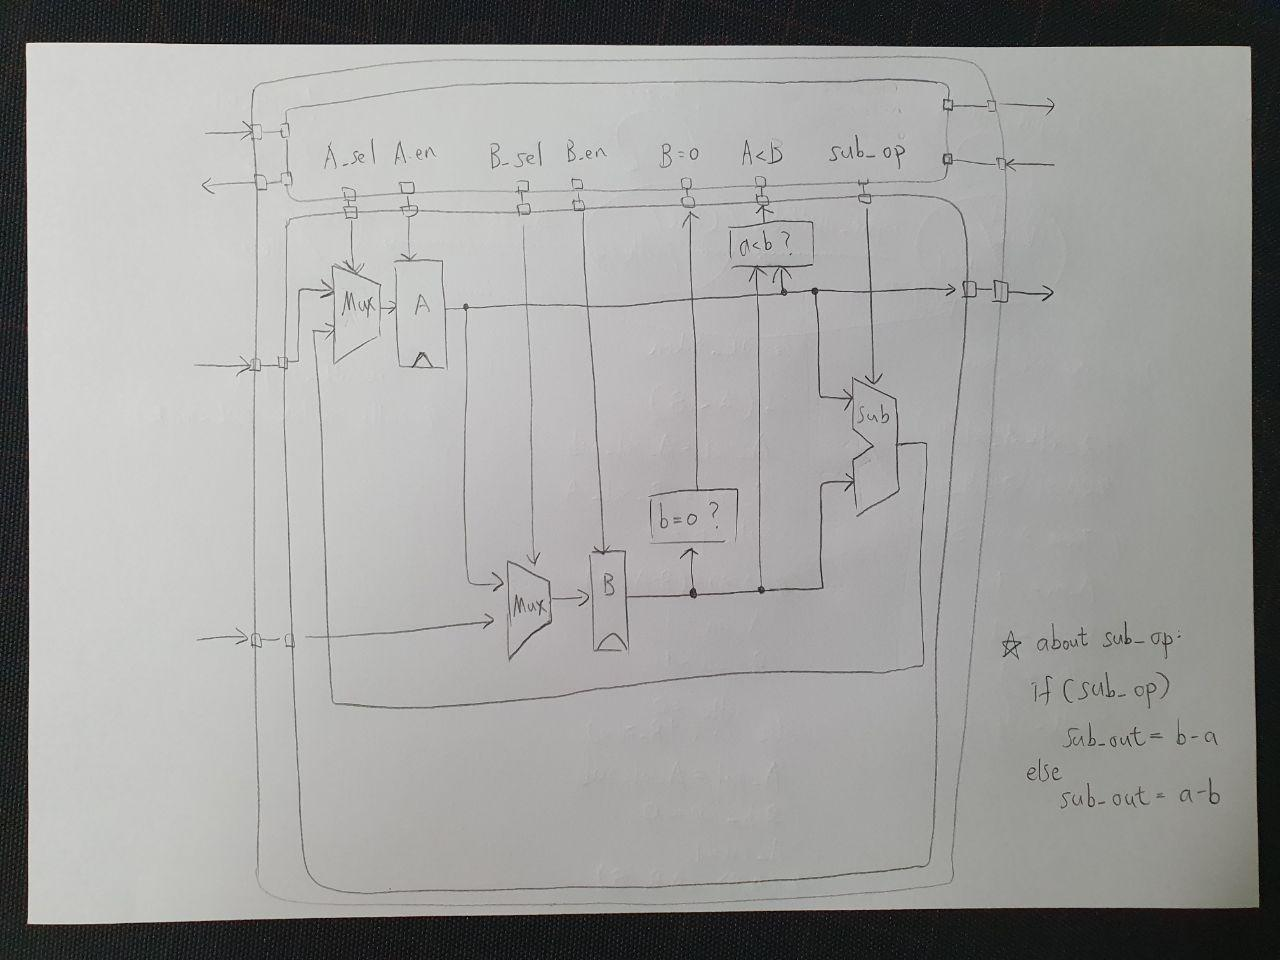 A_sel A_en B_sel B_en B=0 A<B sub_op
a<b ?
Mux A
sub
b=0 ?
Mux B
☆ about sub_op:
if (sub_op)
sub_out = b-a
else
sub_out = a-b